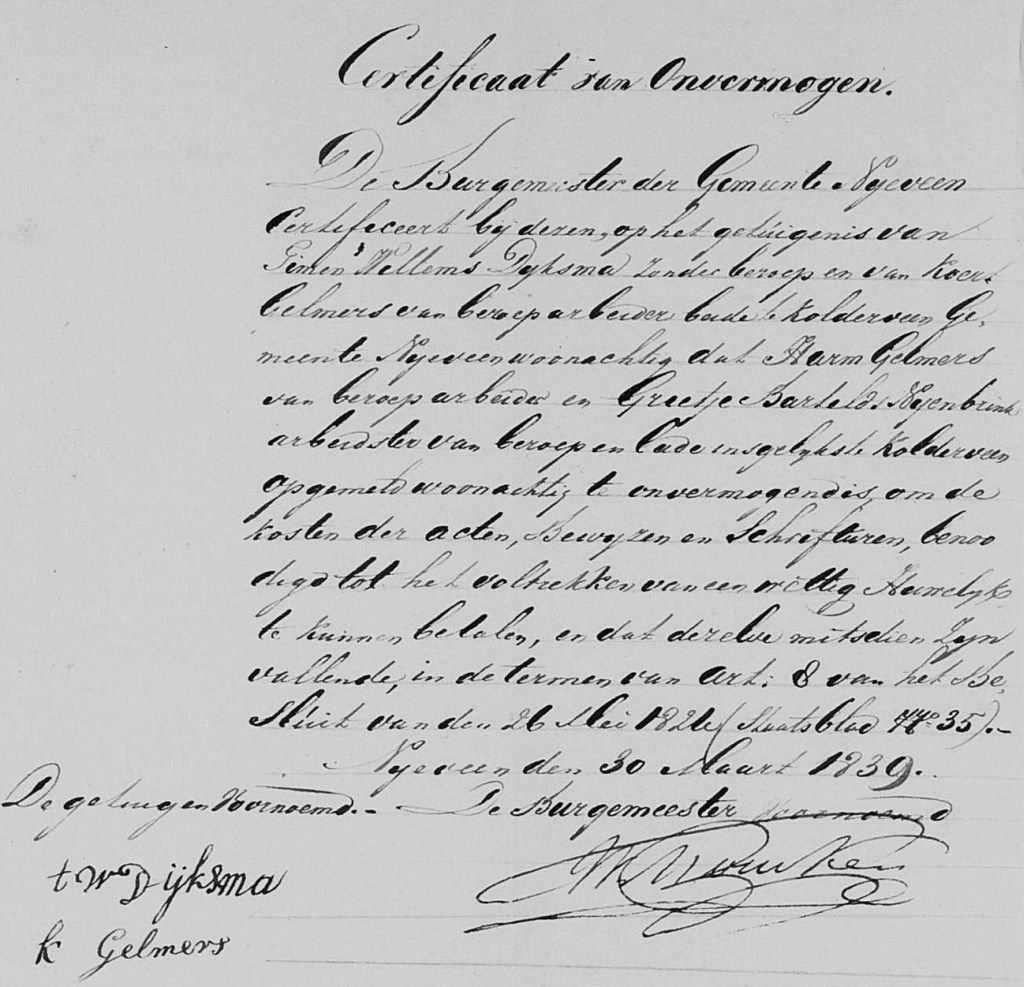 Certificaat van Onvermogen.
De Burgemeester der Gemeente Nyeveen
Certificeert bij deren, op het getuigenis van
Willems Dyksma zonder beroep en van Koert
Gelmers van beroep arbeider beide te Kolderveen Ge-
meente Nyeveen woonachtig dat Harm Gelmers
van beroep arbeider en Grietje Bartelds Nyenbrink
arbeidster van beroep en beide insgelyks te Kolderveen
opgemeld woonachtig te onvermogend is, om de
kosten der acten, Bewyzen en Schrifturen, benoo
digd tot het voltrekken van een wettig Huwelyk
te kunnen betalen, en dat derelve mitsdien zyn
vallende, in de termen van Art: 8 van het Be-
sluit van den 26 Mei 1824 (Staatsblad No 35).-
Nyeveen den 30 Maart 1839.
De getuigen Voornoemd.- De Burgemeester voornoemd
t W Dijksma
k Gelmers